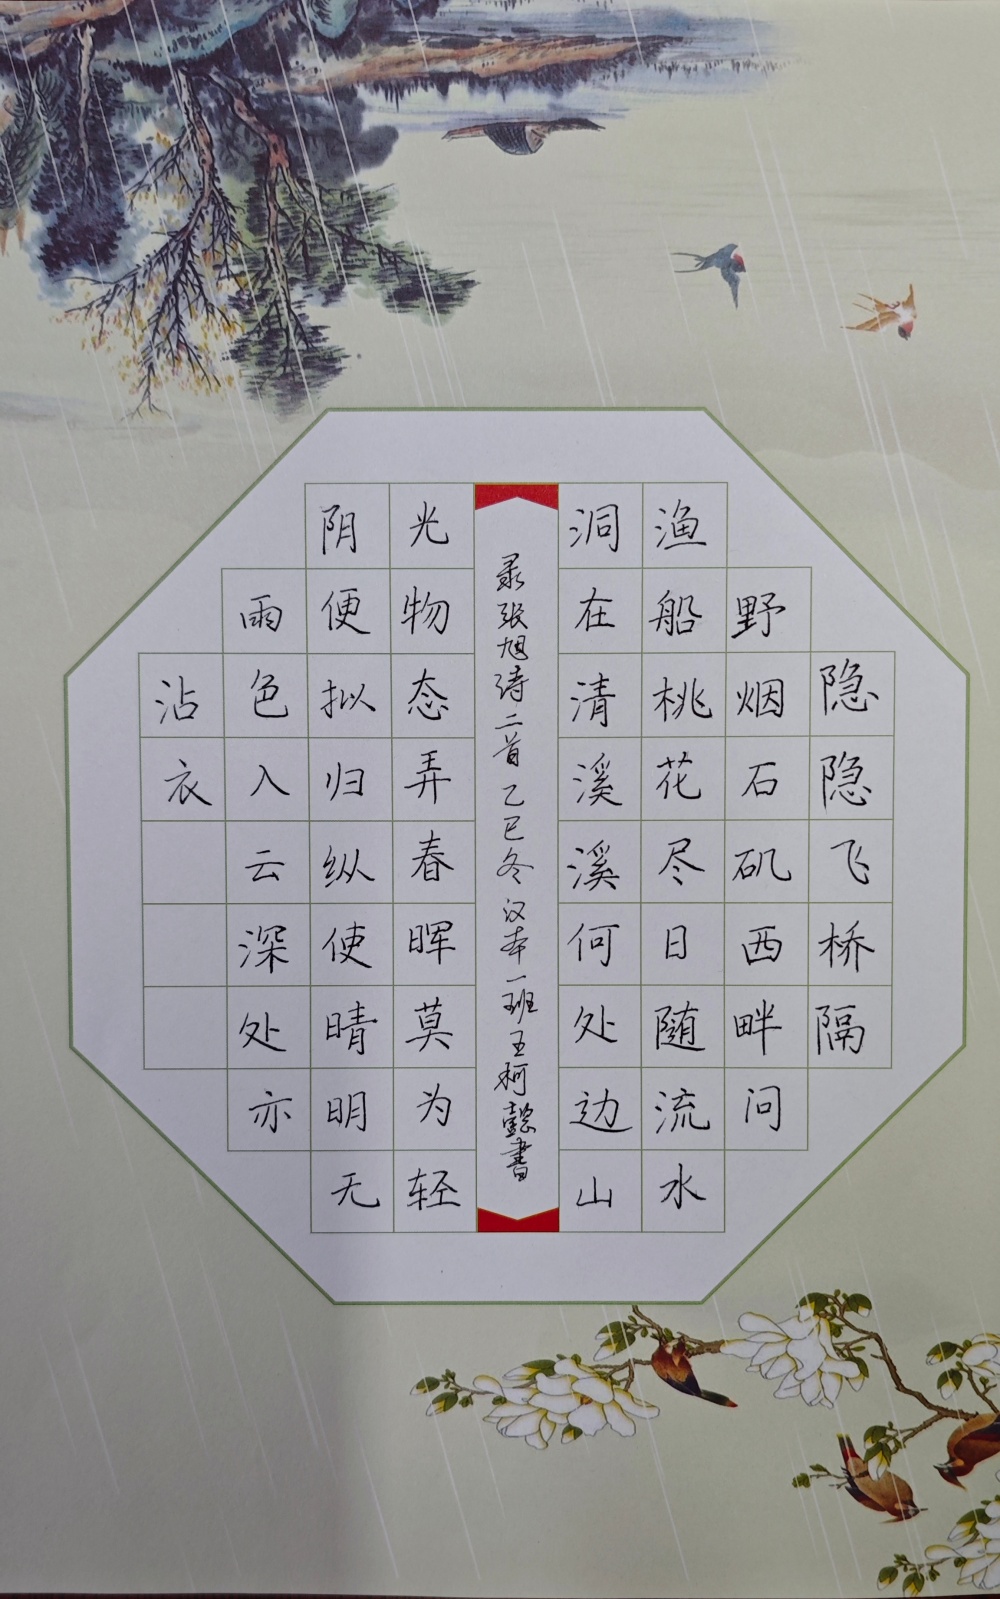 隐隐飞桥隔
野烟石矶西畔问
渔船桃花尽日随流水
洞在清溪溪何处边山
录张旭诗二首乙巳冬汉本一班王柯懿书
光物态弄春晖莫为轻
阴便拟归纵使晴明无
雨色入云深处亦
沾衣